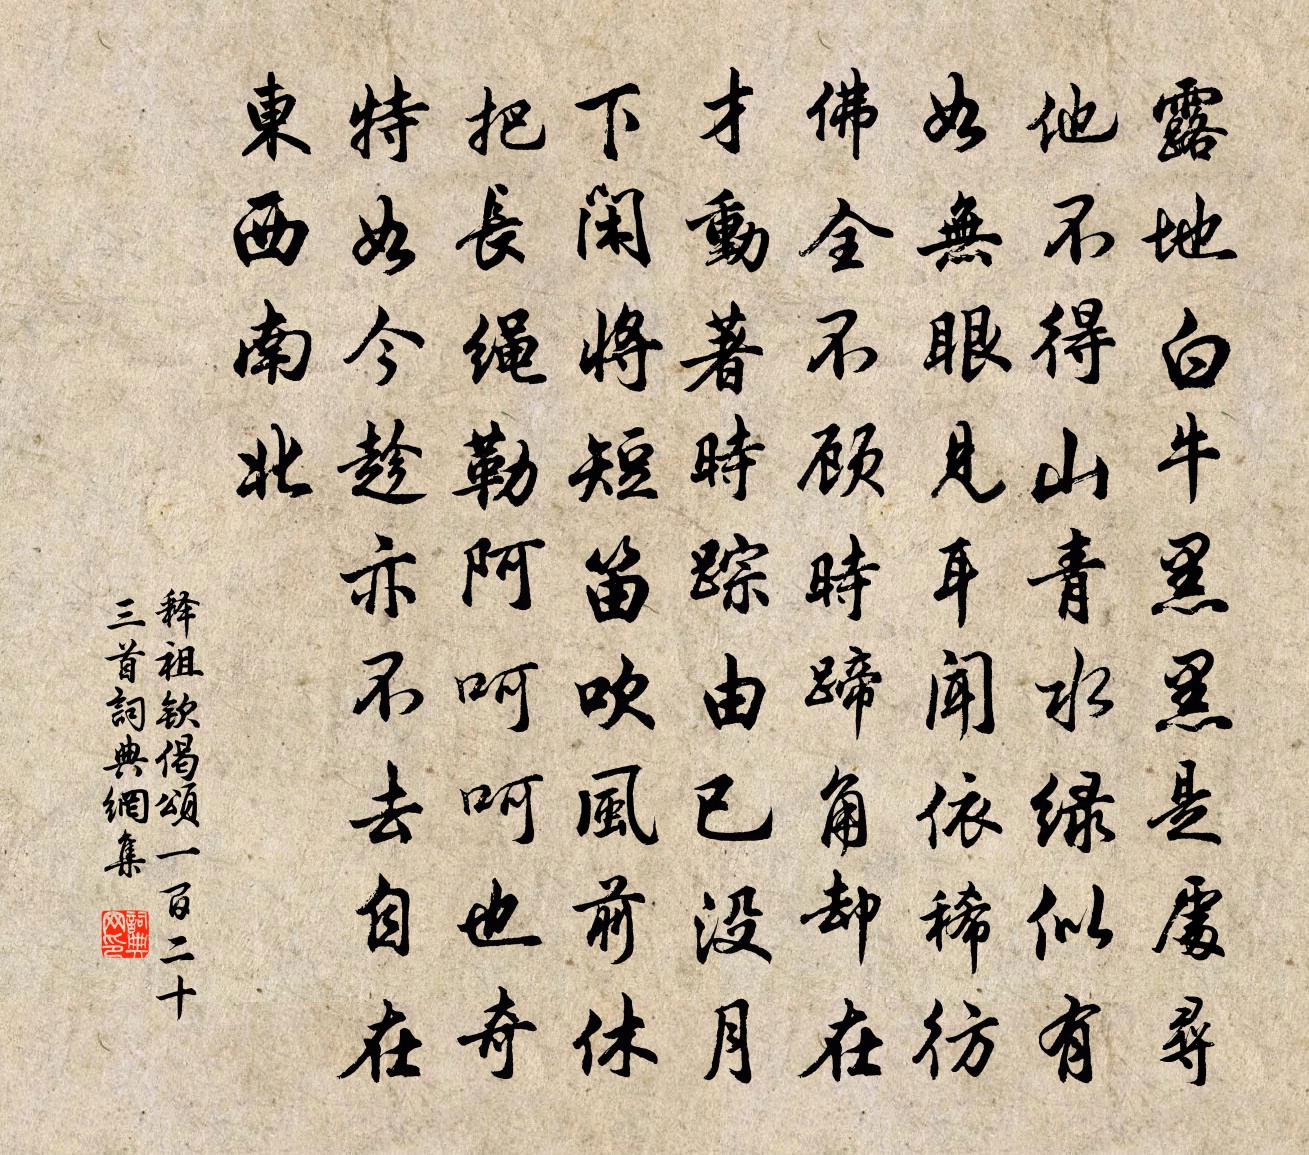 露地白牛黑黑是處尋
他不得山青水緑似有
如無眼見耳聞依稀彷
佛全不顾時蹄角却在
才動著時踪由已没月
下閑將短笛吹風前休
把長绳勒阿呵呵也奇
特如今趁亦不去自在
東西南北
释祖钦偈頌一百二十
三首詞典網集
詞典网印